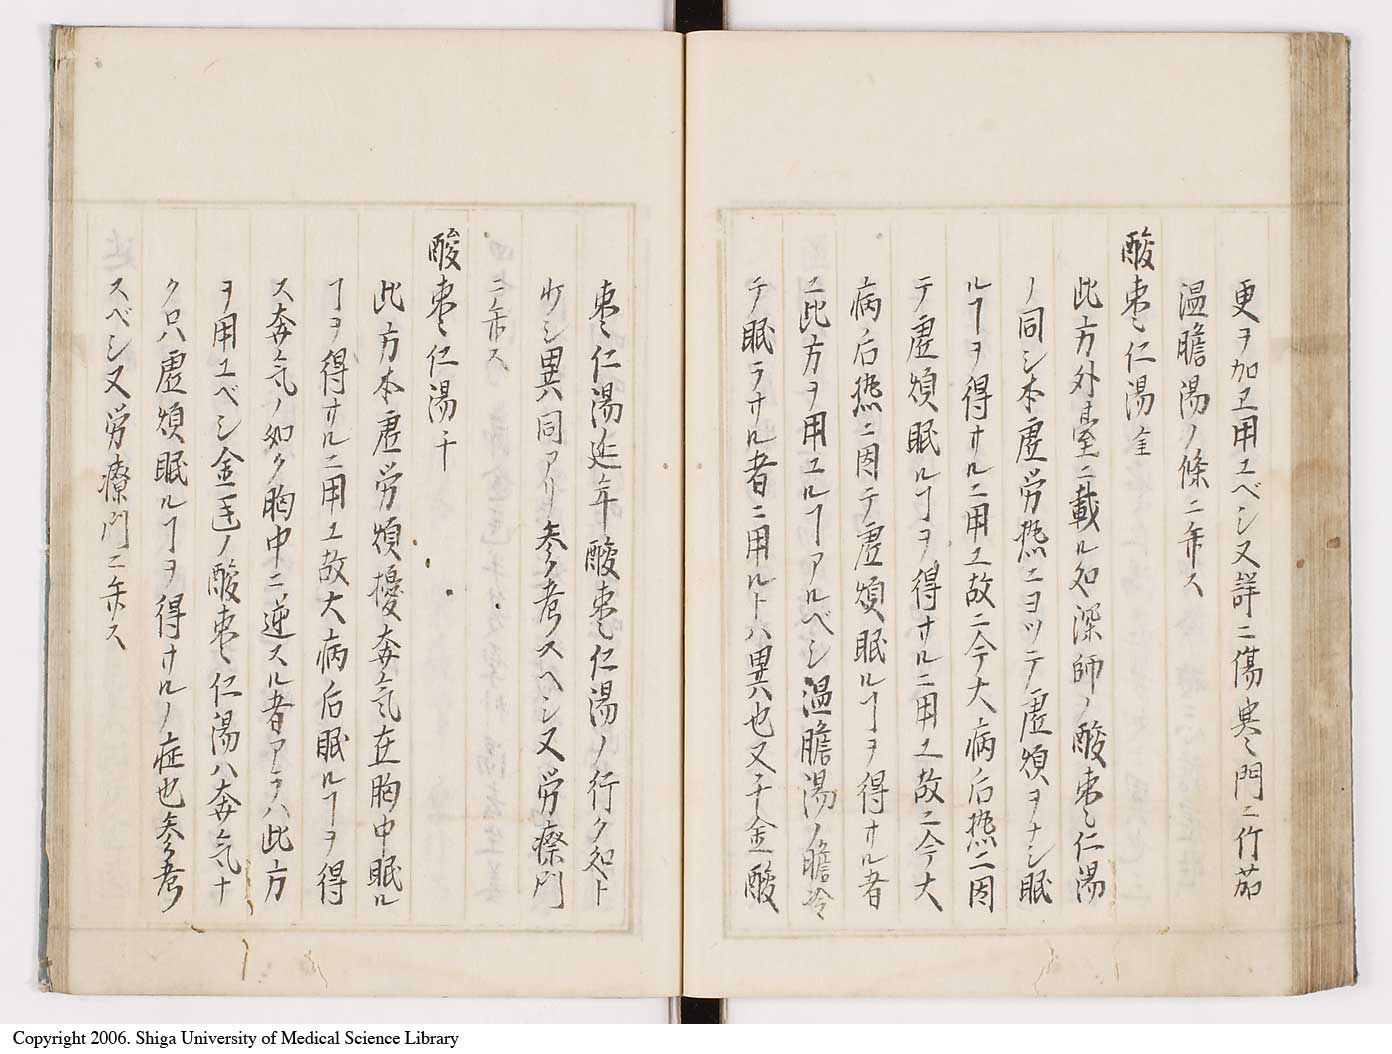 更ヲ加ヱ用ユベシ又詳ニ傷寒門ニ竹茹
温膽湯ノ條ニ弁ス
酸枣仁湯
此方外臺ニ載ル処深師ノ酸枣仁湯
ノ同シ本虚労𤍠ニヨツテ虚煩ヲナシ眠
ルヿヲ得サルニ用ユ故ニ今大病后𤍠ニ因
テ虚煩眠ルヿヲ得サルニ用ユ故ニ今大
病后𤍠ニ因テ虚煩眠ルヿヲ得サル者
ニ此方ヲ用ユルヿアルベシ温膽湯ノ膽冷
テ眠ラサル者ニ用ルトハ異也又千金酸
枣仁湯延年酸枣仁湯ノ行ク処ト
少シ異同アリ参考スヘシ又労瘵門
ニ弁ス
酸枣仁湯千
此方本虚労煩擾奔気在胸中眠ル
ヿヲ得サルニ用ユ故大病后眠ルヿヲ得
ス奔気ノ如ク胸中ニ逆スル者アラハ此方
ヲ用ユベシ金匱ノ酸枣仁湯ハ奔気ナ
ク只虚煩眠ルヿヲ得サルノ症也参考
スベシ又労療門ニ弁ス
Copyright 2006. Shiga University of Medical Science Library